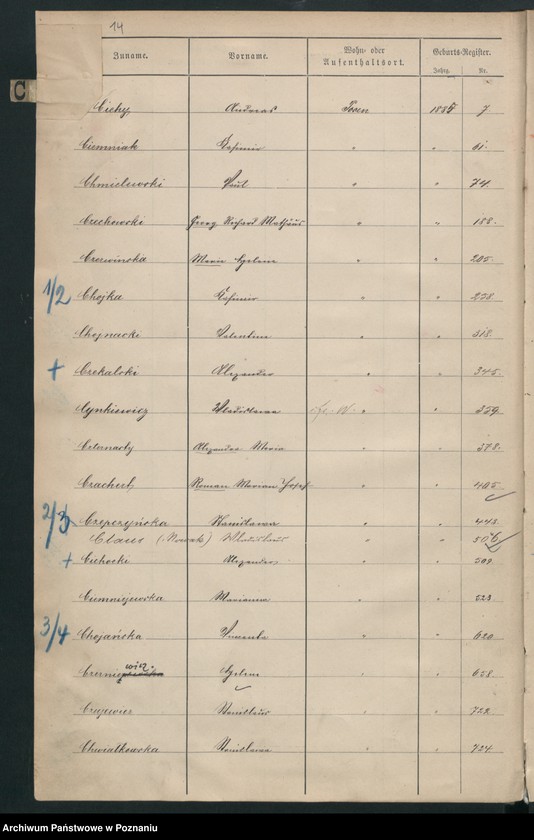 14
Zuname. Vorname. Wohn- oder Aufenthaltsort. Geburts-Register.
Jahrg. Nr.
C
Cichy Andreas Posen 1885 7
Ciemniak Casimir " " 61
Chmielewski Paul " " 74
Czechowski Georg Richard Mathäus " " 188
Czerwinska Maria Helene " " 205
1/2 Chojka Casimir " " 278
Chojnacki Valentin " " 318
+ Czekalski Alexander " " 345
Cynkiewicz Wladislawa " " 359
Alexandra Maria " " 378
Roman Marian Josef " " 405
2/3 Czepczyńska Stanislawa " " 443
Claus (Nowak) Wladislaus " " 506
+ Cichocki Alexander " " 509
Ciemniejewska Marianna " " 523
3/4 Chojańska " " 620
Czerniewicz Helene " " 658
Czajewicz Stanislaus " " 722
Chwialkowska Stanislawa " " 724
Archiwum Państwowe w Poznaniu